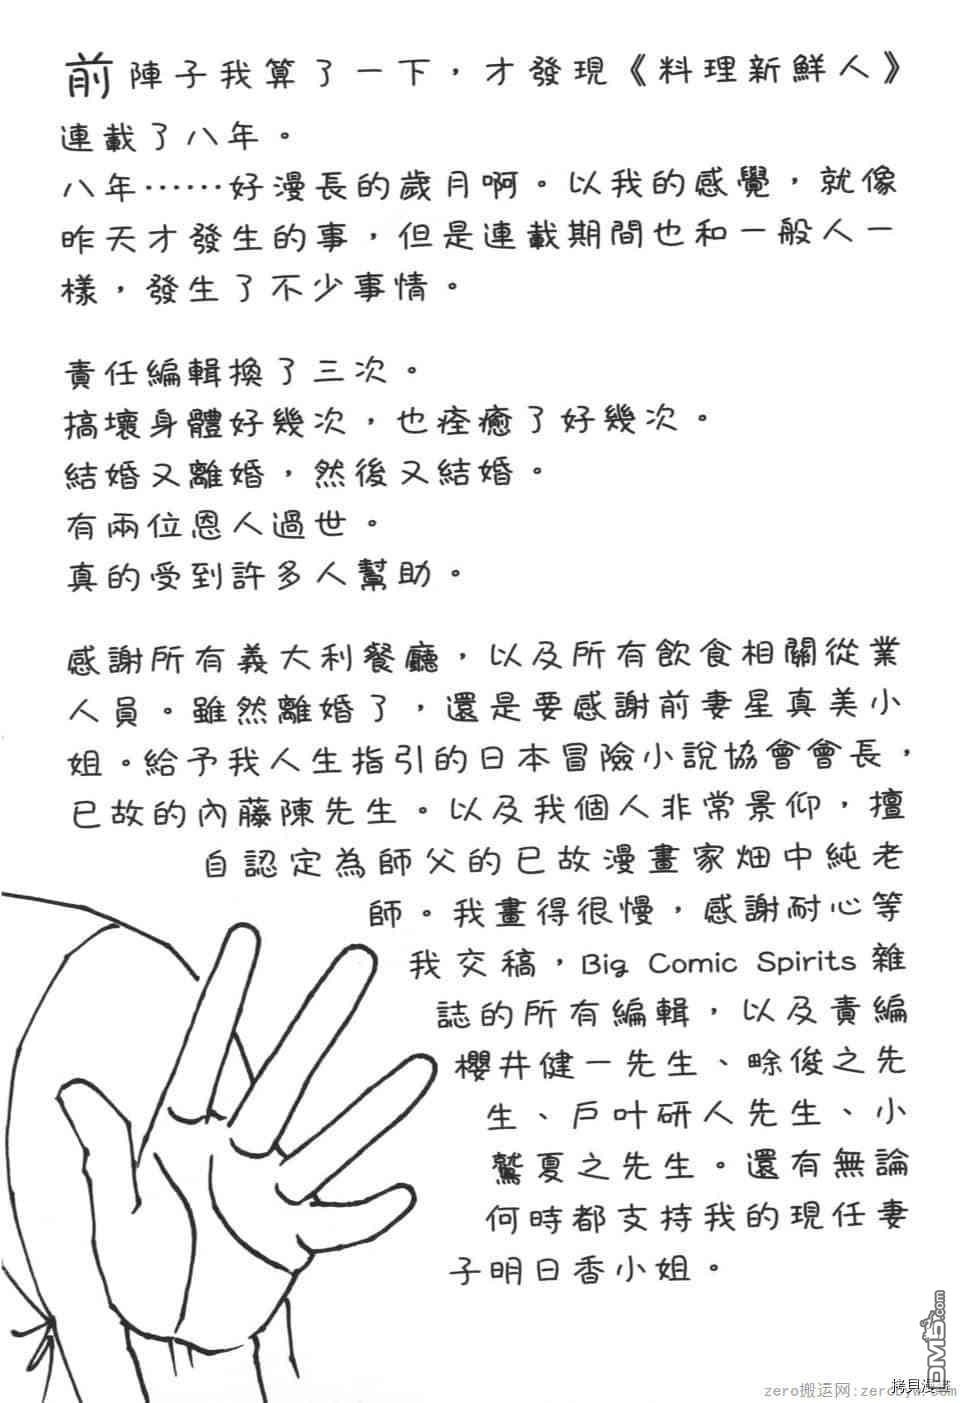 前陣子我算了一下，才發現《料理新鮮人》
連載了八年。
八年……好漫長的歲月啊。以我的感覺，就像
昨天才發生的事，但是連載期間也和一般人一
樣，發生了不少事情。
責任編輯換了三次。
搞壞身體好幾次，也痊癒了好幾次。
結婚又離婚，然後又結婚。
有兩位恩人過世。
真的受到許多人幫助。
感謝所有義大利餐廳，以及所有飲食相關從業
人員。雖然離婚了，還是要感謝前妻星真美小
姐。給予我人生指引的日本冒險小說協會會長，
已故的內藤陳先生。以及我個人非常景仰，擅
自認定為師父的已故漫畫家畑中純老
師。我畫得很慢，感謝耐心等
我交稿，Big Comic Spirits雜
誌的所有編輯，以及責編
櫻井健一先生、畭俊之先
生、戶叶研人先生、小
鷲夏之先生。還有無論
何時都支持我的現任妻
子明日香小姐。
DM5.com
拷貝漫畫
zero搬运网:zerobyw.com